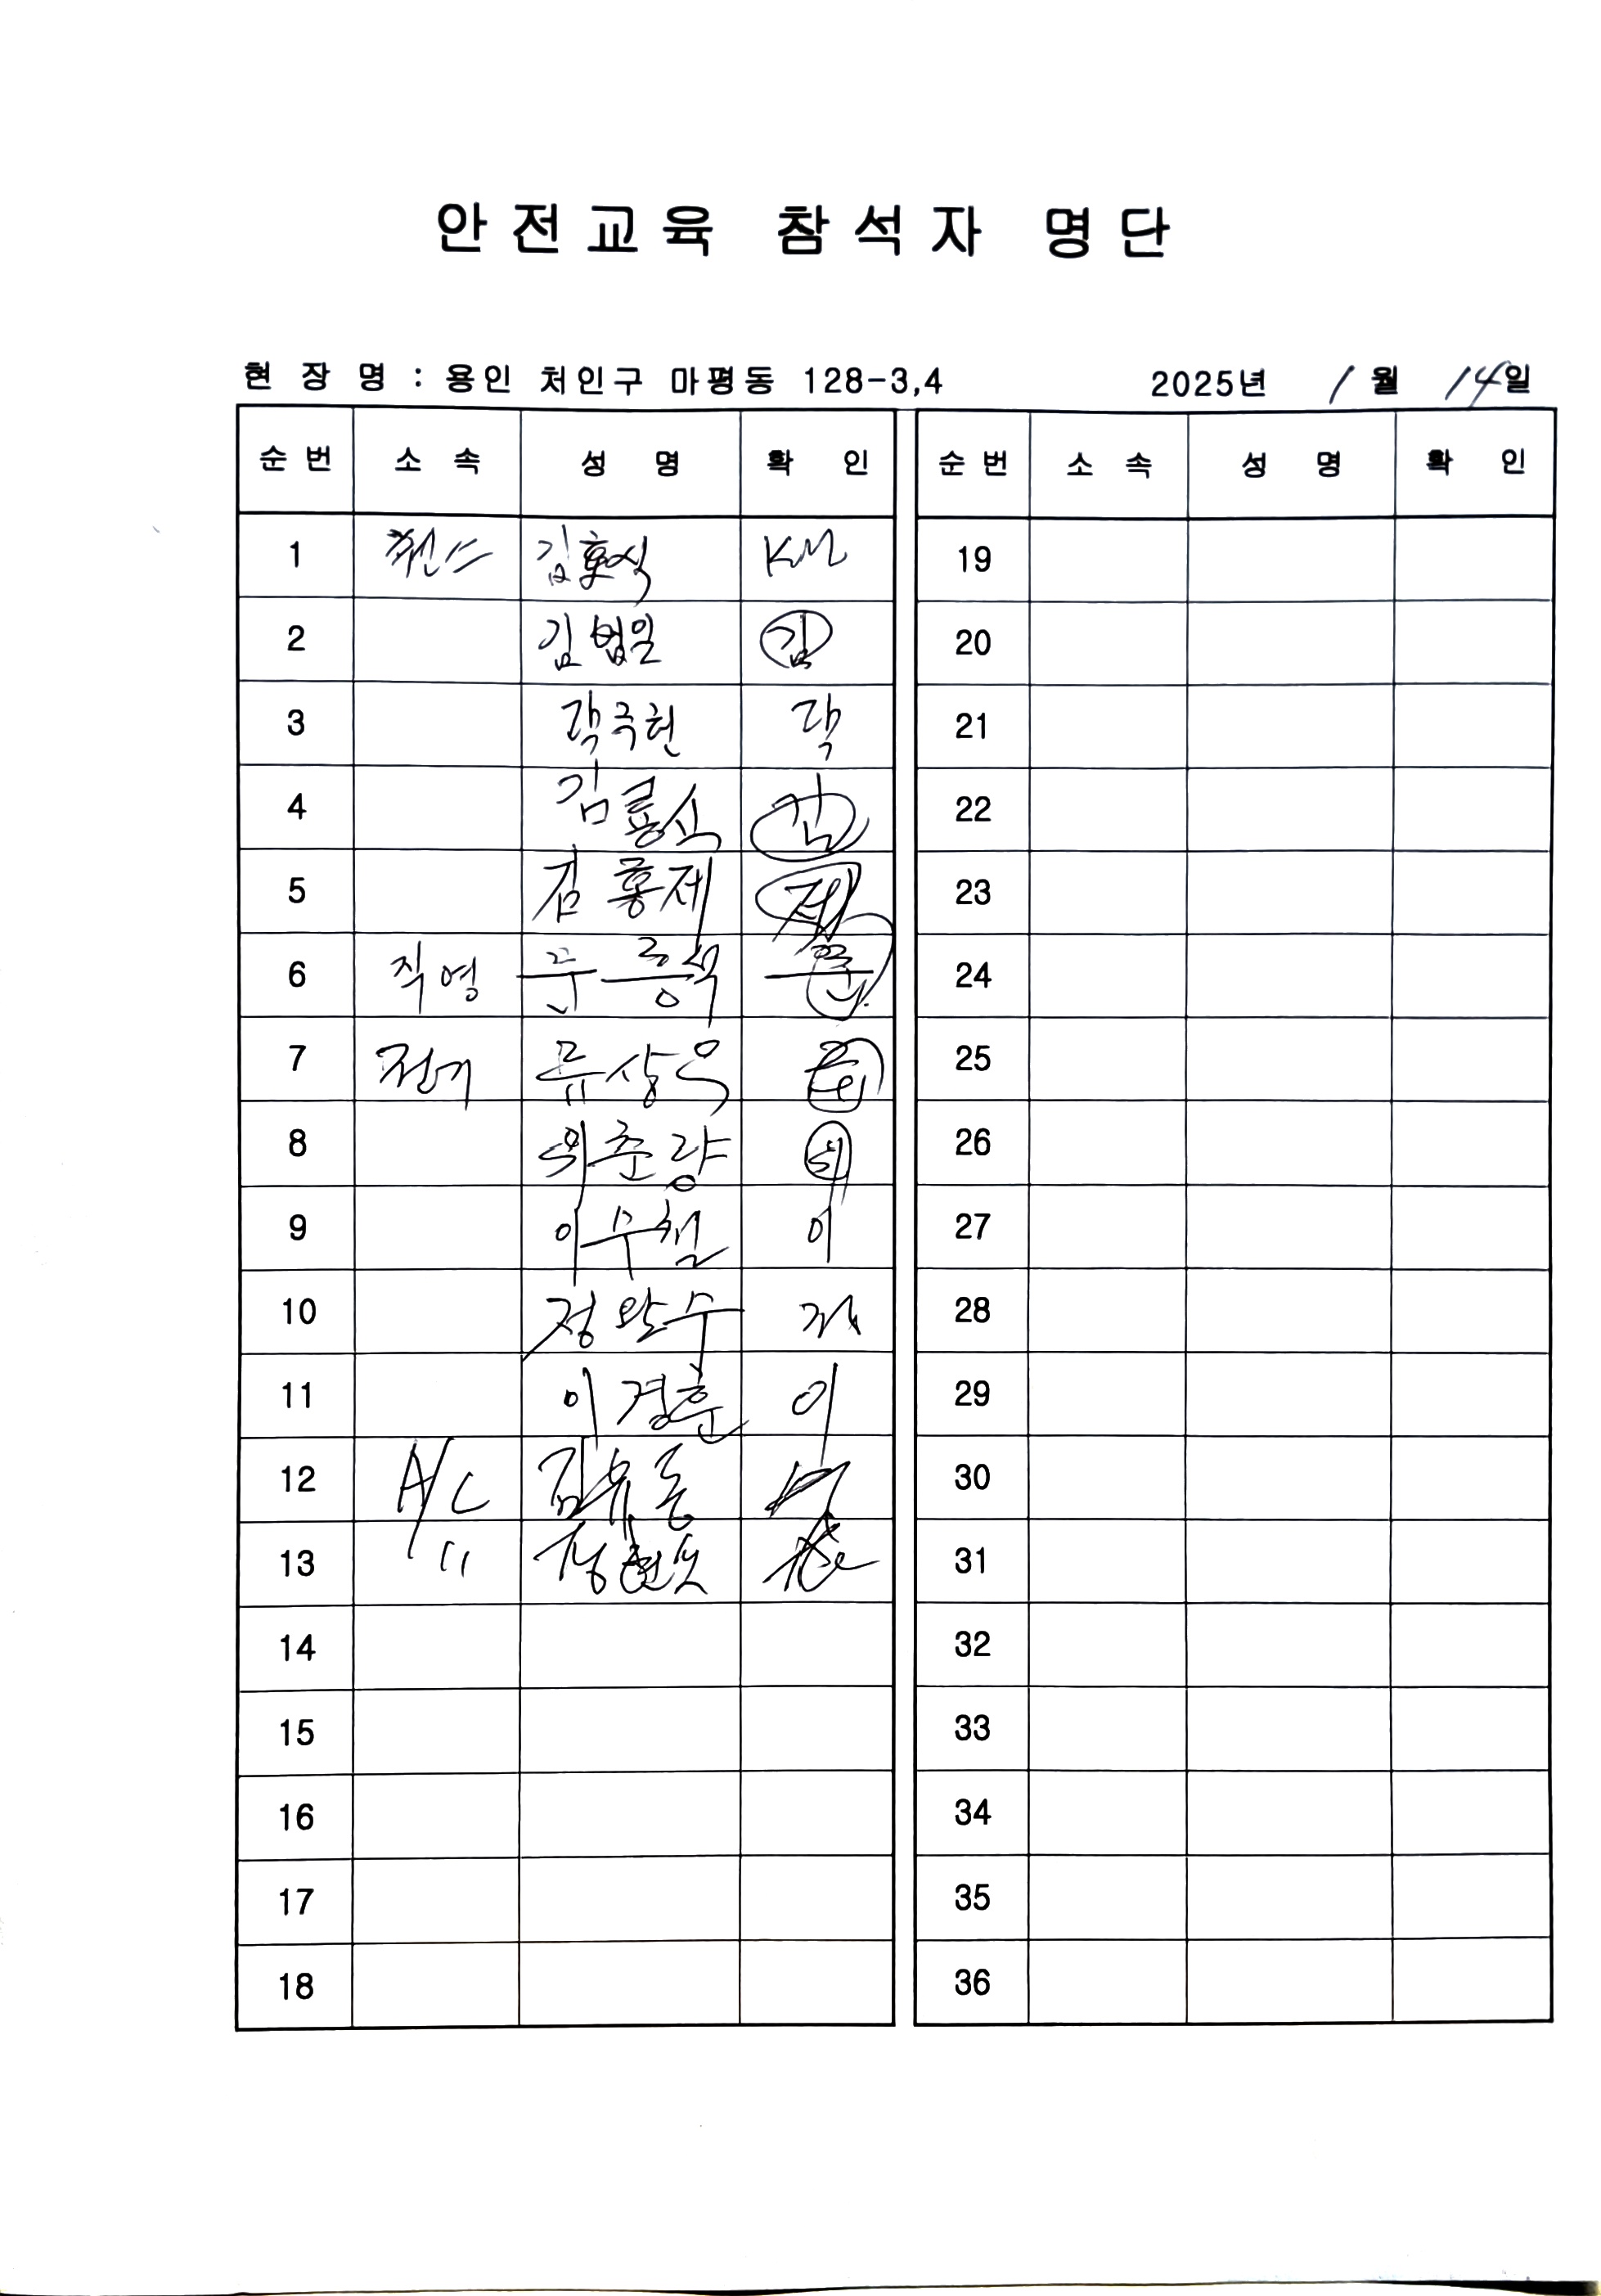 안전교육 참석자 명단
현 장 명 : 용인 처인구 마평동 128-3,4 2025년 1월 14일
순번 소속 성명 확인 순번 소속 성명 확인
1 KM 19
2 김범일 김 20
3 곽국현 곽 21
4 김룡식 김 22
5 김홍제 23
6 직영 24
7 전기 류상욱 25
8 위춘량 위 26
9 이무철 이 27
10 정완수 28
11 이경훈 이 29
12 A/C 30
13 〃 31
14 32
15 33
16 34
17 35
18 36